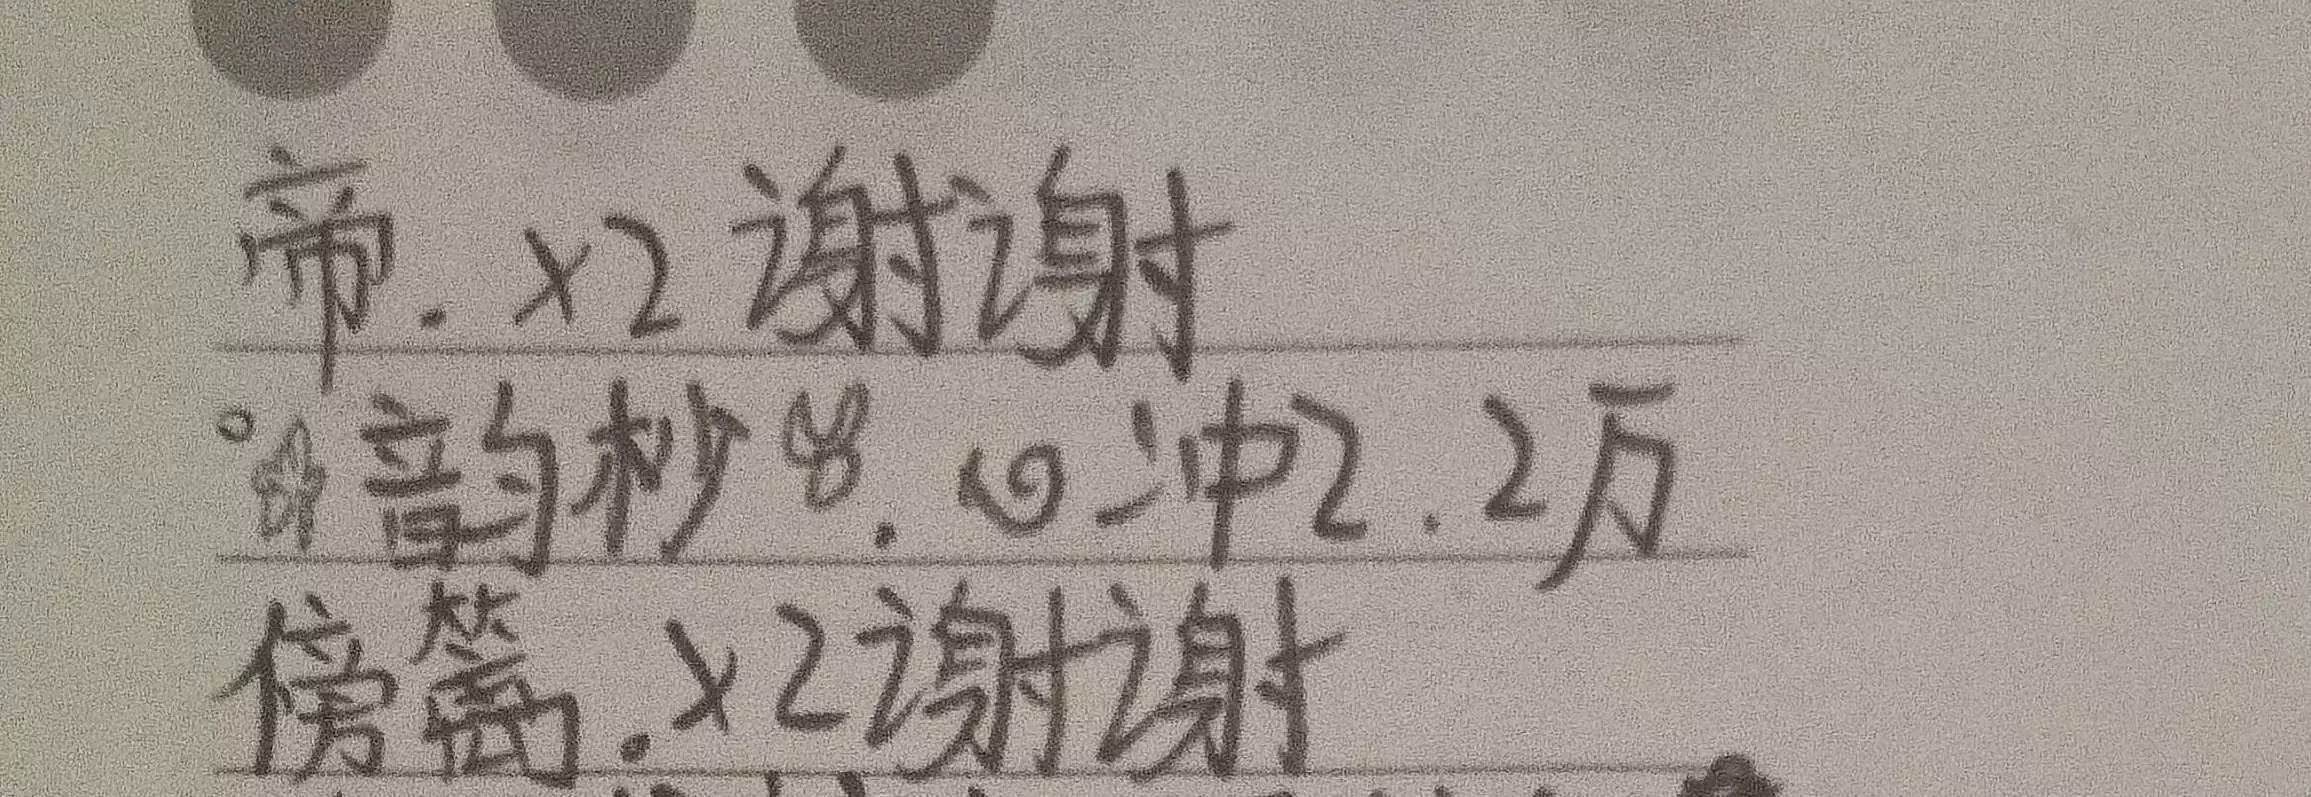 帝. x2 谢谢
韵杪. 冲2.2万
傍篱. x2谢谢